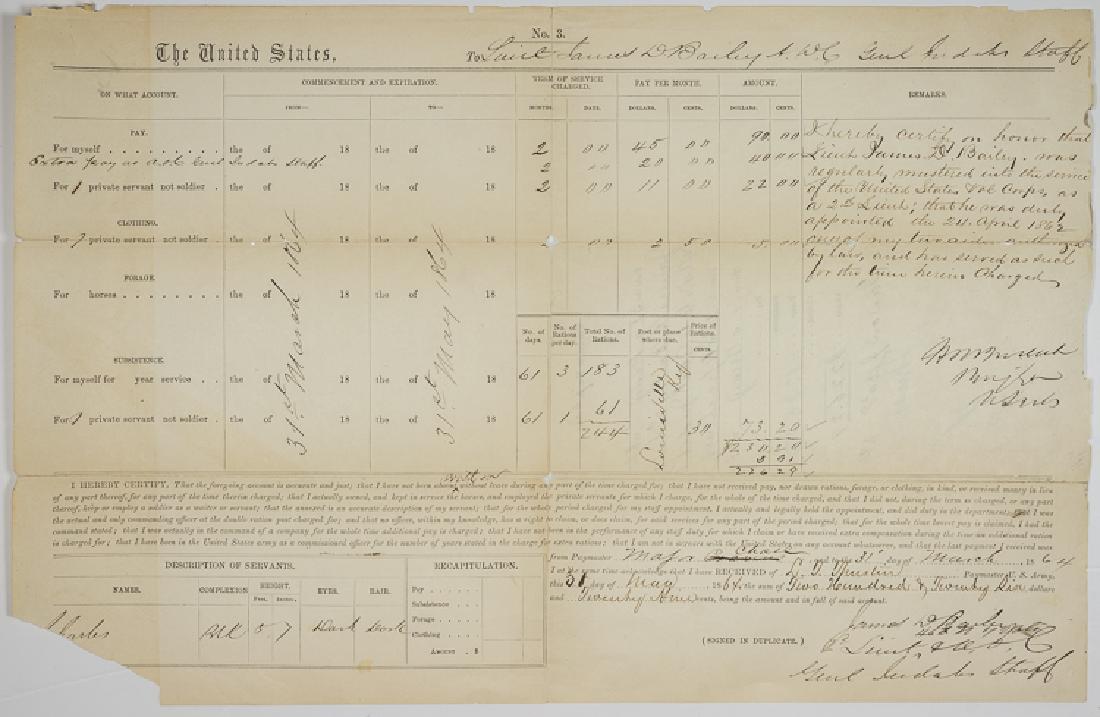 No. 3.
The United States,
To Lieut James D Bailey A.D.C Genl Judahs Staff
ON WHAT ACCOUNT.
COMMENCEMENT AND EXPIRATION.
TERM OF SERVICE CHARGED.
PAY PER MONTH.
AMOUNT.
REMARKS.
FROM— TO— MONTHS. DAYS. DOLLARS. CENTS. DOLLARS. CENTS.
PAY.
For myself the of 18 the of 18 2 00 45 00 90 00
Extra pay as adc Genl Judahs Staff 2 00 20 00 40 00
For 1 private servant not soldier the of 18 the of 18 2 00 11 00 22 00
CLOTHING.
For 1 private servant not soldier the of 18 the of 18 2 00 2 50 5 00
FORAGE.
For horses the of 18 the of 18
31st March 1864
31st May 1864
I hereby certify on honor that
Lieut James D. Bailey was
regularly mustered into the service
of the United States Vol Corps, as
a 2nd Lieut; that he was duly
appointed the 24 April 1862
one of my two aides authorized
by law, and has served as such
for the time herein Charged
No. of days.
No. of Rations per day.
Total No. of Rations.
Post or place where due.
Price of Rations.
CENTS.
SUBSISTENCE.
For myself for year service the of 18 the of 18 61 3 183
For 1 private servant not soldier the of 18 the of 18 61 1 61
244 30 73.20
Louisville Ky
230 20
226 29
I HEREBY CERTIFY, That the foregoing account is accurate and just; that I have not been absent without leave during any part of the time charged for; that I have not received pay, nor drawn rations, forage, or clothing, in kind, or received money in lieu
of any part thereof, for any part of the time therein charged; that I actually owned, and kept in service the horses, and employed the private servants for which I charge, for the whole of the time charged, and that I did not, during the term so charged, or any part
thereof, keep or employ a soldier as a waiter or servant; that the annexed is an accurate description of my servant; that for the whole period charged for my staff appointment, I actually and legally held the appointment, and did duty in the department; that I was
the actual and only commanding officer at the double ration post charged for; and that no officer, within my knowledge, has a right to claim, or does claim, for said services for any part of the period charged; that for the whole time
command stated; that I was actually in the command of a company for the whole time additional pay is charged; that I have not
is charged for; that I have been in the United States army as a commissioned officer for the number of years stated in the charge for extra rations; that I am not in arrears with the United States on any account whatsoever, and that the last payment I received was
from Paymaster Major Chase and to the 31st day of March 1864
I at the same time acknowledge that I have RECEIVED of Paymaster U. S. Army,
this 31 day of May 1864, the sum of Two Hundred & Twenty Six dollars
and Twenty Nine cents, being the amount and in full of said account.
DESCRIPTION OF SERVANTS.
RECAPITULATION.
NAMES. COMPLEXION HEIGHT. EYES. HAIR.
Feet. Inches.
5 7 Dark Dark
Pay
Subsistence
Forage
Clothing
AMOUNT $
(SIGNED IN DUPLICATE.)
James D Bailey
Genl Judahs Staff